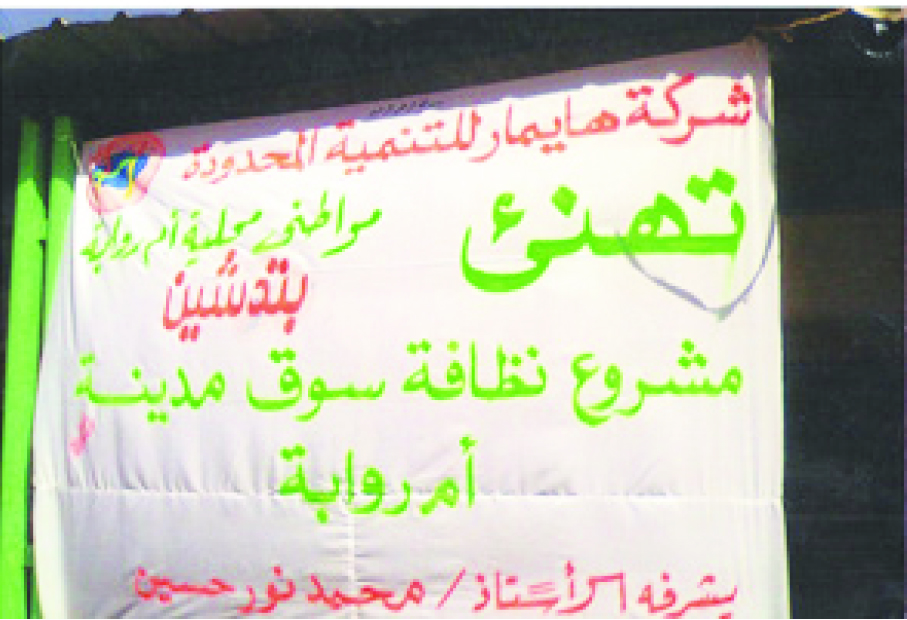 شركة هايمار للتنمية المحدودة
تهنئ
مواطني محلية أم روابة
بتدشين
مشروع نظافة سوق مدينة
أم روابة
يشرفه الأستاذ / محمد نور حسين